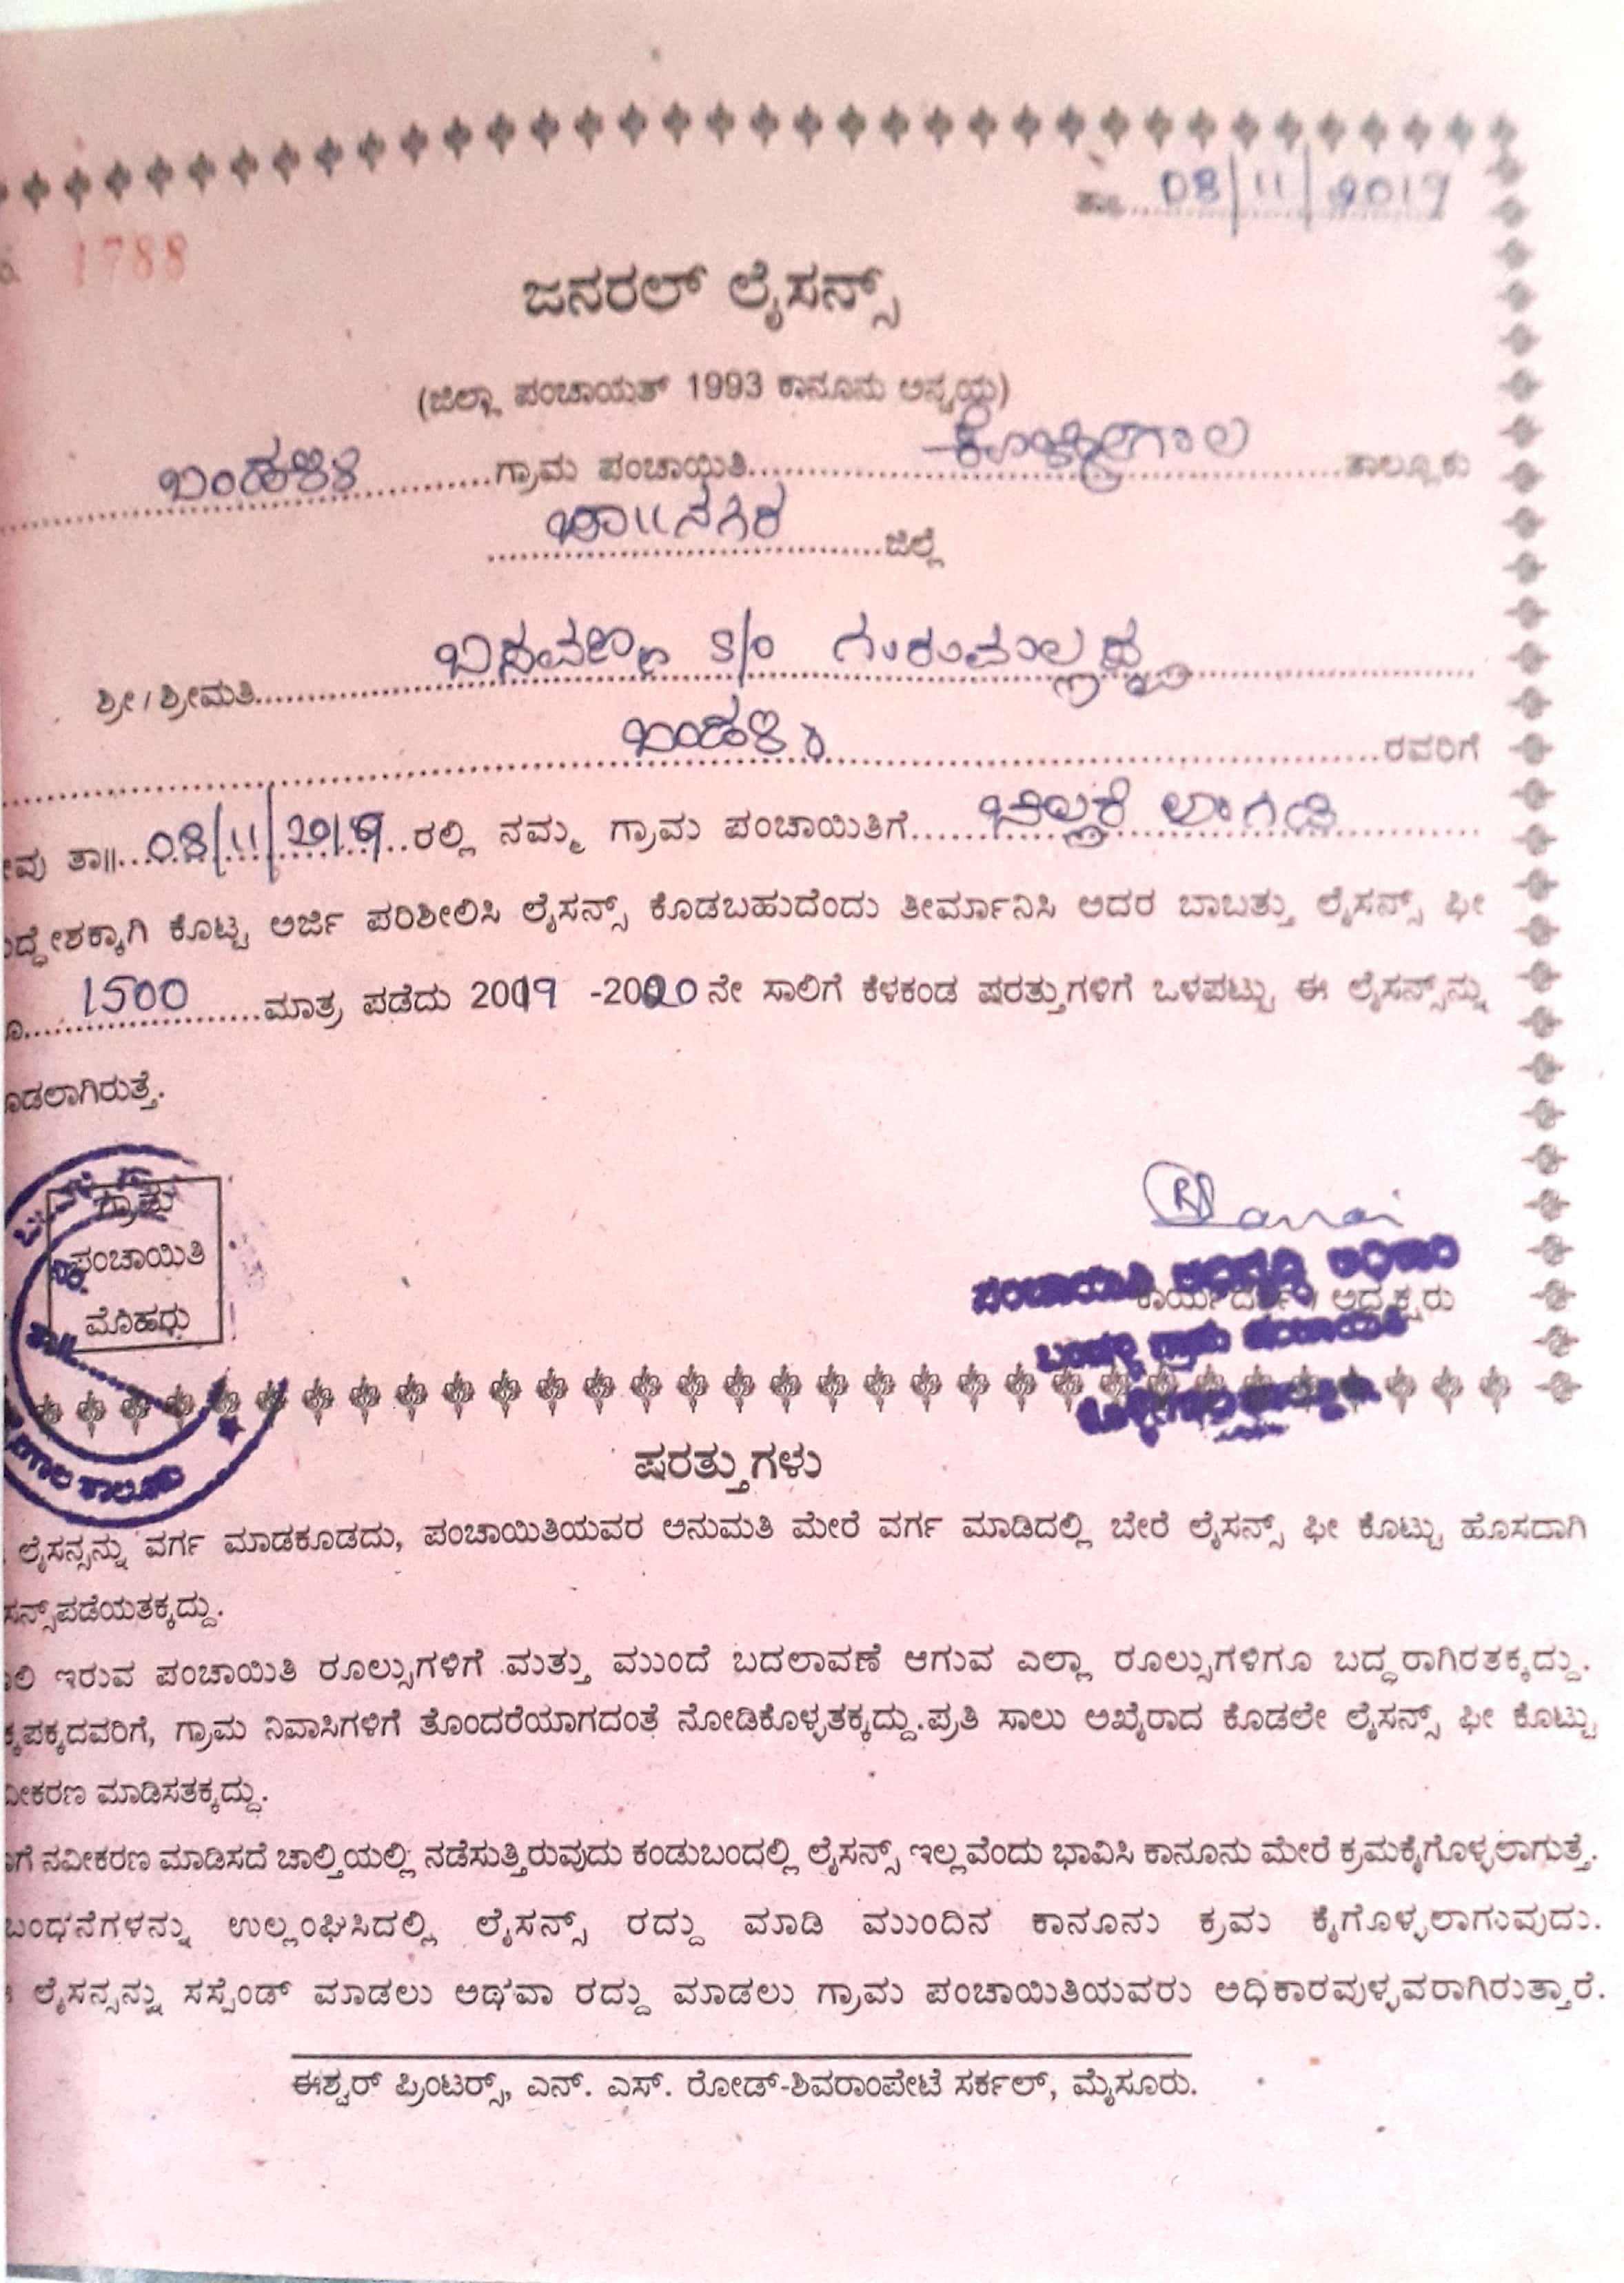 ತಾ॥ 08/11/2019
1788
ಜನರಲ್ ಲೈಸನ್ಸ್
(ಜಿಲ್ಲಾ ಪಂಚಾಯತ್ 1993 ಕಾನೂನು ಅನ್ವಯ)
ಬಂಡಹಳಿಳಿ ಗ್ರಾಮ ಪಂಚಾಯಿತಿ ಕೊಳ್ಳೇಗಾಲ ತಾಲ್ಲೂಕು
ಚಾ॥ನಗರ ಜಿಲ್ಲೆ
ಶ್ರೀ / ಶ್ರೀಮತಿ ಬಸವಣ್ಣ S/o ಗುರುಮಲ್ಲಪ್ಪ
ರವರಿಗೆ
ವು ತಾ॥ 08/11/2019 ರಲ್ಲಿ ನಮ್ಮ ಗ್ರಾಮ ಪಂಚಾಯಿತಿಗೆ ಚಿಲ್ಲರೆ ಅಂಗಡಿ
ದ್ದೇಶಕ್ಕಾಗಿ ಕೊಟ್ಟ ಅರ್ಜಿ ಪರಿಶೀಲಿಸಿ ಲೈಸನ್ಸ್ ಕೊಡಬಹುದೆಂದು ತೀರ್ಮಾನಿಸಿ ಅದರ ಬಾಬತ್ತು ಲೈಸನ್ಸ್ ಫೀ
1500 ಮಾತ್ರ ಪಡೆದು 2019 -2020 ನೇ ಸಾಲಿಗೆ ಕೆಳಕಂಡ ಷರತ್ತುಗಳಿಗೆ ಒಳಪಟ್ಟು ಈ ಲೈಸನ್ಸ್‌ನ್ನು
ಡಲಾಗಿರುತ್ತೆ.
ಗ್ರಾಮ
ಪಂಚಾಯಿತಿ
ಮೊಹರು
ಪಂಚಾಯಿತಿ ಅಭಿವೃದ್ಧಿ ಅಧಿಕಾರಿ
ಕಾರ್ಯದರ್ಶಿ / ಅಧ್ಯಕ್ಷರು
ಗ್ರಾಮ ಪಂಚಾಯಿತಿ
ತಾಲ್ಲೂಕು
ಷರತ್ತುಗಳು
ಲೈಸನ್ಸನ್ನು ವರ್ಗ ಮಾಡಕೂಡದು, ಪಂಚಾಯಿತಿಯವರ ಅನುಮತಿ ಮೇರೆ ವರ್ಗ ಮಾಡಿದಲ್ಲಿ ಬೇರೆ ಲೈಸನ್ಸ್ ಫೀ ಕೊಟ್ಟು ಹೊಸದಾಗಿ
ಸನ್ಸ್‌ಪಡೆಯತಕ್ಕದ್ದು.
ಲಿ ಇರುವ ಪಂಚಾಯಿತಿ ರೂಲ್ಸುಗಳಿಗೆ ಮತ್ತು ಮುಂದೆ ಬದಲಾವಣೆ ಆಗುವ ಎಲ್ಲಾ ರೂಲ್ಸುಗಳಿಗೂ ಬದ್ಧರಾಗಿರತಕ್ಕದ್ದು.
ಕ್ಕಪಕ್ಕದವರಿಗೆ, ಗ್ರಾಮ ನಿವಾಸಿಗಳಿಗೆ ತೊಂದರೆಯಾಗದಂತೆ ನೋಡಿಕೊಳ್ಳತಕ್ಕದ್ದು.ಪ್ರತಿ ಸಾಲು ಅಖೈರಾದ ಕೊಡಲೇ ಲೈಸನ್ಸ್ ಫೀ ಕೊಟ್ಟು
ವೀಕರಣ ಮಾಡಿಸತಕ್ಕದ್ದು.
ಗೆ ನವೀಕರಣ ಮಾಡಿಸದೆ ಚಾಲ್ತಿಯಲ್ಲಿ ನಡೆಸುತ್ತಿರುವುದು ಕಂಡುಬಂದಲ್ಲಿ ಲೈಸನ್ಸ್ ಇಲ್ಲವೆಂದು ಭಾವಿಸಿ ಕಾನೂನು ಮೇರೆ ಕ್ರಮಕೈಗೊಳ್ಳಲಾಗುತ್ತೆ.
ಬಂಧನೆಗಳನ್ನು ಉಲ್ಲಂಘಿಸಿದಲ್ಲಿ ಲೈಸನ್ಸ್ ರದ್ದು ಮಾಡಿ ಮುಂದಿನ ಕಾನೂನು ಕ್ರಮ ಕೈಗೊಳ್ಳಲಾಗುವುದು.
ಲೈಸನ್ಸನ್ನು ಸಸ್ಪೆಂಡ್ ಮಾಡಲು ಅಥವಾ ರದ್ದು ಮಾಡಲು ಗ್ರಾಮ ಪಂಚಾಯಿತಿಯವರು ಅಧಿಕಾರವುಳ್ಳವರಾಗಿರುತ್ತಾರೆ.
ಈಶ್ವರ್ ಪ್ರಿಂಟರ್ಸ್, ಎನ್. ಎಸ್. ರೋಡ್-ಶಿವರಾಂಪೇಟೆ ಸರ್ಕಲ್, ಮೈಸೂರು.